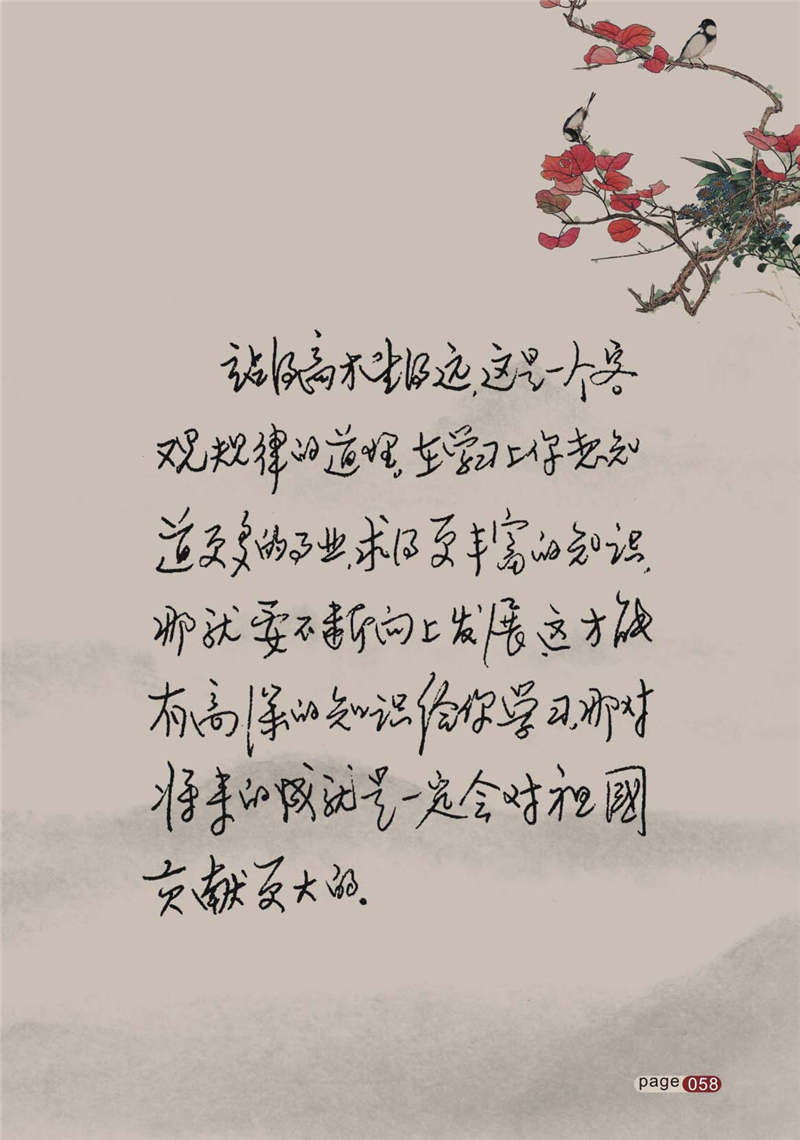 站得高才望得远,这是一个客
观规律的道理。在学习上你想知
道更多的事业,求得更丰富的知识,
那就要不断向上发展,这才能
有高深的知识给你学习,那对
将来的成就是一定会对祖國
贡献更大的.
page 058